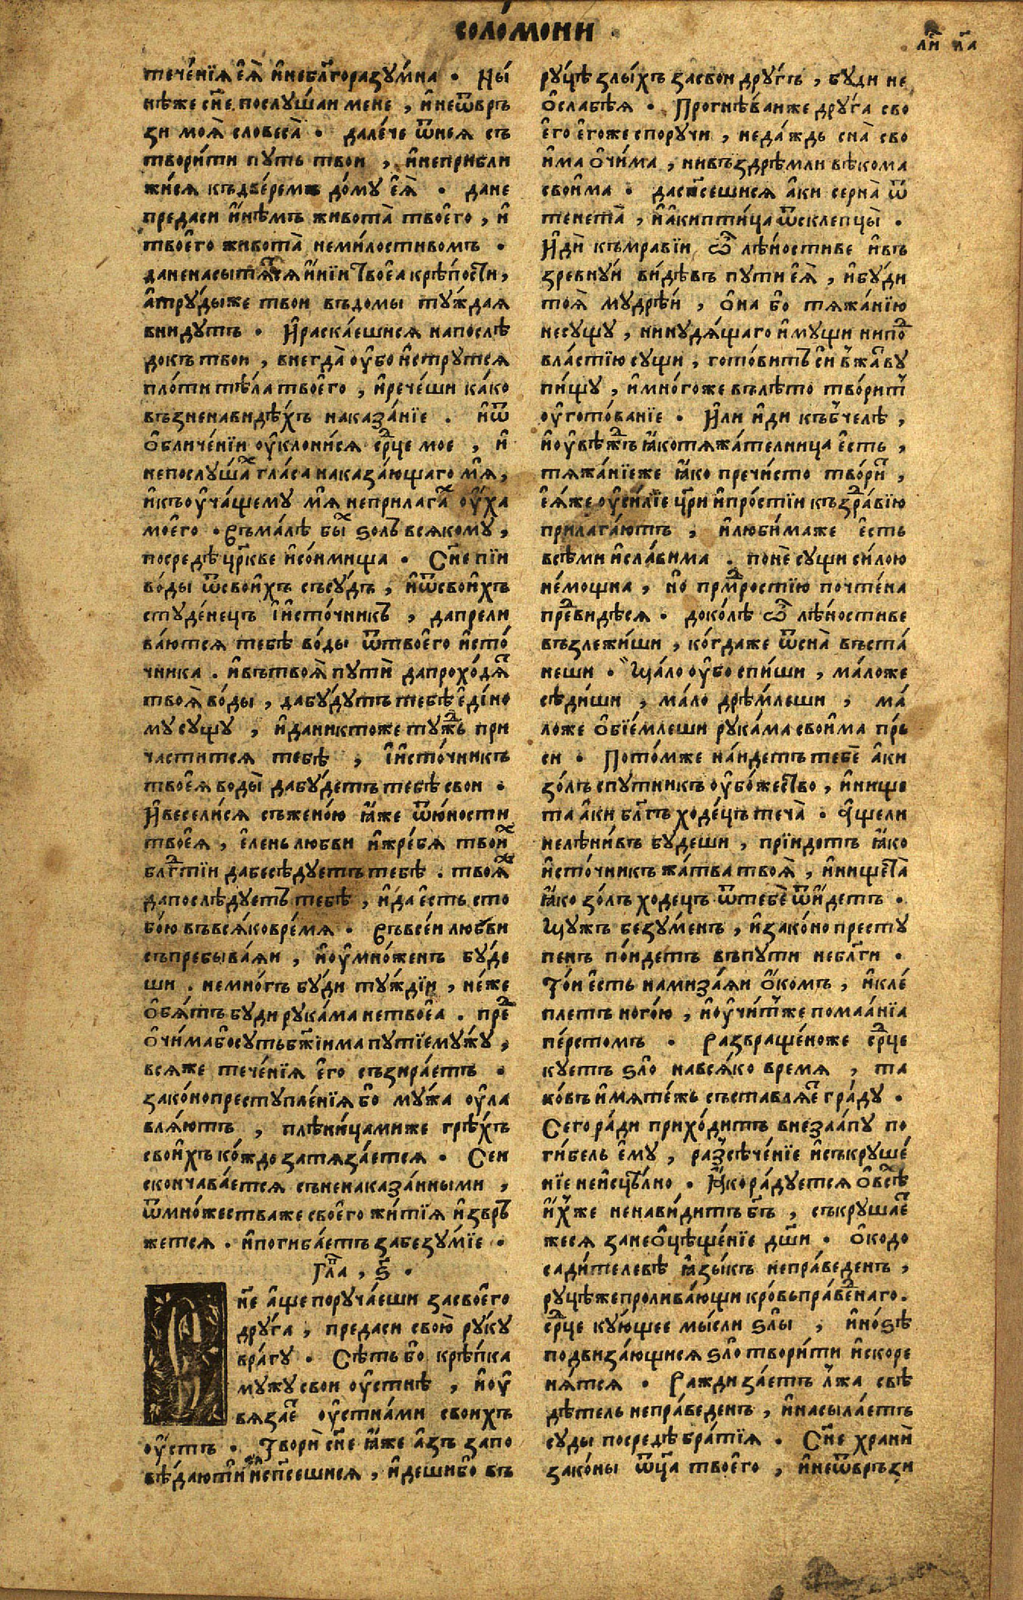 СОЛО́МОНИ
ли́ с҃а
тече́нїѧ еѧ̀ и҆небл҃горазꙋ́мна . Ны́
нѣже сн҃е послꙋ́шаи мене , и҆неѿврь
зи моѧ̀ словеса̀ . дале́че ѿнеѧ съ
твори́ти пꙋть твои , и҆неприбли
жи́сѧ къдве́ремъ до́мꙋ еѧ̀ . дане
предаси и҆нѣ́мъ живота̀ твоего̀ , и҆
твоего̀ живота̀ неми́лостивомъ .
данена́сытѧтсѧ и҆ні́и твоеѧ крѣ́пости,
а҆трꙋды́же твои въдомы тꙋ́ждаѧ
вни́дꙋтъ . И҆раска́ешисѧ напослѣ
докъ твои , внегда̀ оу҆бо и҆стрꙋтсѧ
пло́ти тѣ́ла твоего̀ , и҆рече́ши ка́ко
възненави́дѣхъ наказа́нїе . и҆ѿ
о҆бличе́нїи оу҆клони́сѧ ср҃це мое , и҆
непослꙋ́шахъ гла́са наказа́ющаго мѧ̀,
и҆къоу҆ча́щемꙋ мѧ̀ неприлага́хъ оу҆́ха
моего̀ . Съма́лѣ бы́хъ ѕолъ всѧкомꙋ,
посредѣ цр҃кве и҆со́имища . Сн҃е пїи
во́ды ѿсвои́хъ съсꙋдъ , и҆ѿсвои́хъ
стꙋденецъ і҆исто́чникъ , дапрели
ва́ютсѧ тебѣ во́ды ѿтвоего̀ и҆сто́
чника . и҆вътвоѧ̀ пꙋтѝ дапрохо́дѧт
твоѧ̀ во́ды , дабꙋ́дꙋтъ тебѣ е҆ди́но
мꙋ сꙋщꙋ , и҆даникто́же тꙋждь при
части́тсѧ тебѣ , і҆исто́чникъ
твоеѧ̀ воды̀ дабꙋ́детъ тебѣ свои .
И҆весели́сѧ съжено́ю ꙗ҆́же ѿю́ности
твоеѧ̀ , е҆ле́нь любви и҆жребѧ̀ твои́хъ
бл҃гтїи дабесѣ́дꙋетъ тебѣ . твоѧ̀
дапослѣ́дꙋетъ тебѣ , и҆да есть сто
бо́ю въвсѧ́ко врѐмѧ . Съвсеи любви
съпребыва́ѧи , и҆оу҆мно́женъ бꙋ́де
ши . немно́гъ бꙋ́ди тꙋ́ждїи , не́же
о҆б̾ѧ́тъ бꙋди рꙋка́ма нетвое́ѧ . пред̾
о҆чи́ма бо сꙋть бж҃їима пꙋтїе мꙋжꙋ,
всѧ̀же тече́нїѧ е҆го̀ съзира́етъ .
законопрестꙋпле́нїѧ бо мꙋ́жа оу҆ла
влѧ́ютъ , плѣни́цами же грѣ́хъ
свои́хъ ко́ждо затѧза́етсѧ . Сеи
сконча́ваетсѧ съненаказа́нными ,
ѿмно́жества же своего̀ жи́тїѧ и҆звръ
жетсѧ . и҆погиба́етъ забезꙋ́мїе .
Гла҃ , ѕ҃ .
н҃е а҆́ще порꙋча́еши засвоего
дрꙋ́га , предаси свою̀ рꙋкꙋ
врагꙋ̀ . Сѣть бо крѣ́пка
мꙋжꙋ свои оу҆стнѣ̀ , и҆оу҆
вѧза́етъ оу҆стна́ми своихъ
оу҆́стъ . Твори̂ сн҃е ꙗ҆́же а҆́зъ запо
вѣ́даюти̂ и҆спⷭ҇ешисѧ , и҆деши бо въ
рꙋцѣ злы́хъ засвои дрꙋгъ , бꙋди не
о҆слабѣѧ . Прогнѣ́ваи же дрꙋ́га сво
его̀ е҆го́же спорꙋчи , неда́ждь сна̀ сво
и́ма о҆чи́ма , нивъздрѣмли вѣкома
свои́ма . даспⷭ҇ешисѧ а҆́ки серна̀ ѿ
тенета̀ , и҆а҆́ки пти́ца ѿсклепцы̀ .
И҆ди̂ къмравїи , ѽ лѣ́ностиве и҆въ
зревнꙋ́и ви́дѣвъ пꙋти еѧ̀ , и҆бꙋ́ди
тоѧ̀ мꙋдрѣ́и , о҆на̀ бо тѧжа́нїю
несꙋ́щꙋ , нинꙋдѧ́щаго и҆мꙋ́щи нипод̾
вла́стїю сꙋщи , гото́витъ си в̾жа́твꙋ
пи́щꙋ , и҆мно́гоже влѣ́то тво́ритъ
оу҆гото́ванїе . И҆ли и҆ди къбчелѣ ,
и҆оу҆вѣ́ждь ꙗ҆́ко тѧжа́телница е҆сть ,
тѧжа́нїеже ꙗ҆́ко пречи́сто тво́ритъ ,
е҆ѧ́же оу҆си́лїе цр҃и и҆про́стїи къздра́вїю
прилага́ютъ , и҆люби́ма же е҆сть
всѣ́ми и҆сла́вима . понѐ сꙋщи си́лою
не́мощна , но̀ премⷣростїю почте́на
предви́дѣсѧ . доко́лѣ ѽ лѣ́ностиве
възлежи́ши , когда́же ѿсна̀ въста́
неши . Ма́ло оу҆бо спи́ши , ма́ложе
сѣди́ши , ма́ло дрѣ́млеши , ма́
ложе о҆бїе́млеши рꙋка́ма свои́ма пръ
си . Пото́мже на́идетъ тебѐ а҆ки
зо́лъ спꙋтникъ оу҆бо́жество , и҆нище
та а҆ки бл҃гъ ходе́цъ теча̀ . А҆щели
нелѣни́въ бꙋдеши , прїидетъ ꙗ҆́ко
и҆сто́чникъ жа́тва твоѧ̀ , и҆нищета̀
ꙗ҆́ко зо́лъ ходецъ ѿтебѐ ѿи́детъ .
Мꙋжъ безꙋ́менъ , и҆зако́нопрестꙋ
пенъ пои́детъ въпꙋти небл҃ги .
То́и е҆сть намиза́ѧи о҆́комъ , и҆кле́
плетъ ного́ю , и҆оу҆чи́тъже помаа́нїа
пе́рстомъ . Развраще́ноже ср҃це
кꙋетъ ѕло навсѧ́ко время , та
ковъ́и мѧте́жь съставлѧ́етъ гра́дꙋ .
Сего ра́ди прихо́дитъ внеза́апꙋ по
ги́бель е҆мꙋ̀ , разсѣче́нїе и҆съкрꙋше́
нїе неи҆сцѣ́лно . Ꙗ҆́ко ра́дꙋетсѧ о҆всѣ́хъ
и҆́хже ненави́дитъ бг҃ъ , съкрꙋша́ет
жесѧ зане о҆цѣще́нїе дш҃и . О҆ко до
сади́телевѣ ꙗ҆зы́къ непра́веденъ ,
рꙋцѣже пролива́ющи кро́вь пра́веднаго .
ср҃це кꙋ́ющее мы́сли ѕлы̀ , и҆но́ѕѣ
подвиза́ющисѧ ѕло твори́ти и҆скоре
нѧ́тсѧ . Ражди́заетъ лжа̀ свѣ
дѣ́тель непра́веденъ , и҆насыла́етъ
сꙋды посредѣ бра́тїѧ . Сн҃е храни̂
зако́ны ѿц҃а твоего̀ , и҆неѿврьзи